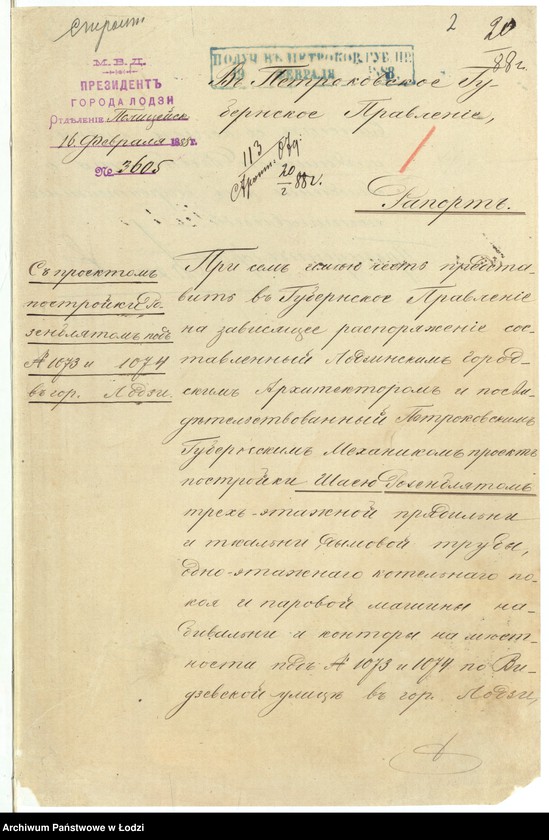 2 20
88 г.
М. В. Д.
ПРЕЗИДЕНТЪ
ГОРОДА ЛОДЗИ
ОТДѢЛЕНІЕ Полицейск
16 Февраля 188 г.
№ 3605
ПОЛУЧ. ВЪ ПЕТРОКОВ. ГУБ. ПР.
ФЕВРАЛЯ
Въ Петроковское Гу-
бернское Правленіе,
113
20
2 88 г.
Рапортъ.
Съ проектомъ
постройки Ро-
зенблятомъ подъ
№ 1073 и 1074
въ гор. Лодзи.
При семъ имѣю честь предста-
вить въ Губернское Правленіе
на зависящее распоряженіе сос-
тавленный Лодзинскимъ Город-
скимъ Архитекторомъ и посви-
дѣтельствованный Петроковскимъ
Губернскимъ Механикомъ проектъ
постройки Шаею Розенблятомъ
трехъ-этажной прядильни
и ткальни дымовой трубы,
одно-этажнаго котельнаго по-
коя и паровой машины на-
бивальни и конторы на мѣст-
ности подъ № 1073 и 1074 по Ви-
дзевской улицѣ въ гор. Лодзи,
Archiwum Państwowe w Łodzi